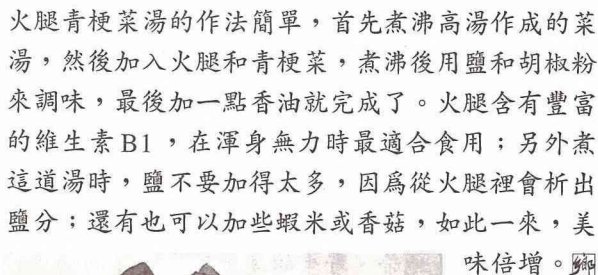 火腿青梗菜湯的作法簡單，首先煮沸高湯作成的菜
湯，然後加入火腿和青梗菜，煮沸後用鹽和胡椒粉
來調味，最後加一點香油就完成了。火腿含有豐富
的維生素B1，在渾身無力時最適合食用；另外煮
這道湯時，鹽不要加得太多，因爲從火腿裡會析出
鹽分；還有也可以加些蝦米或香菇，如此一來，美
味倍增。